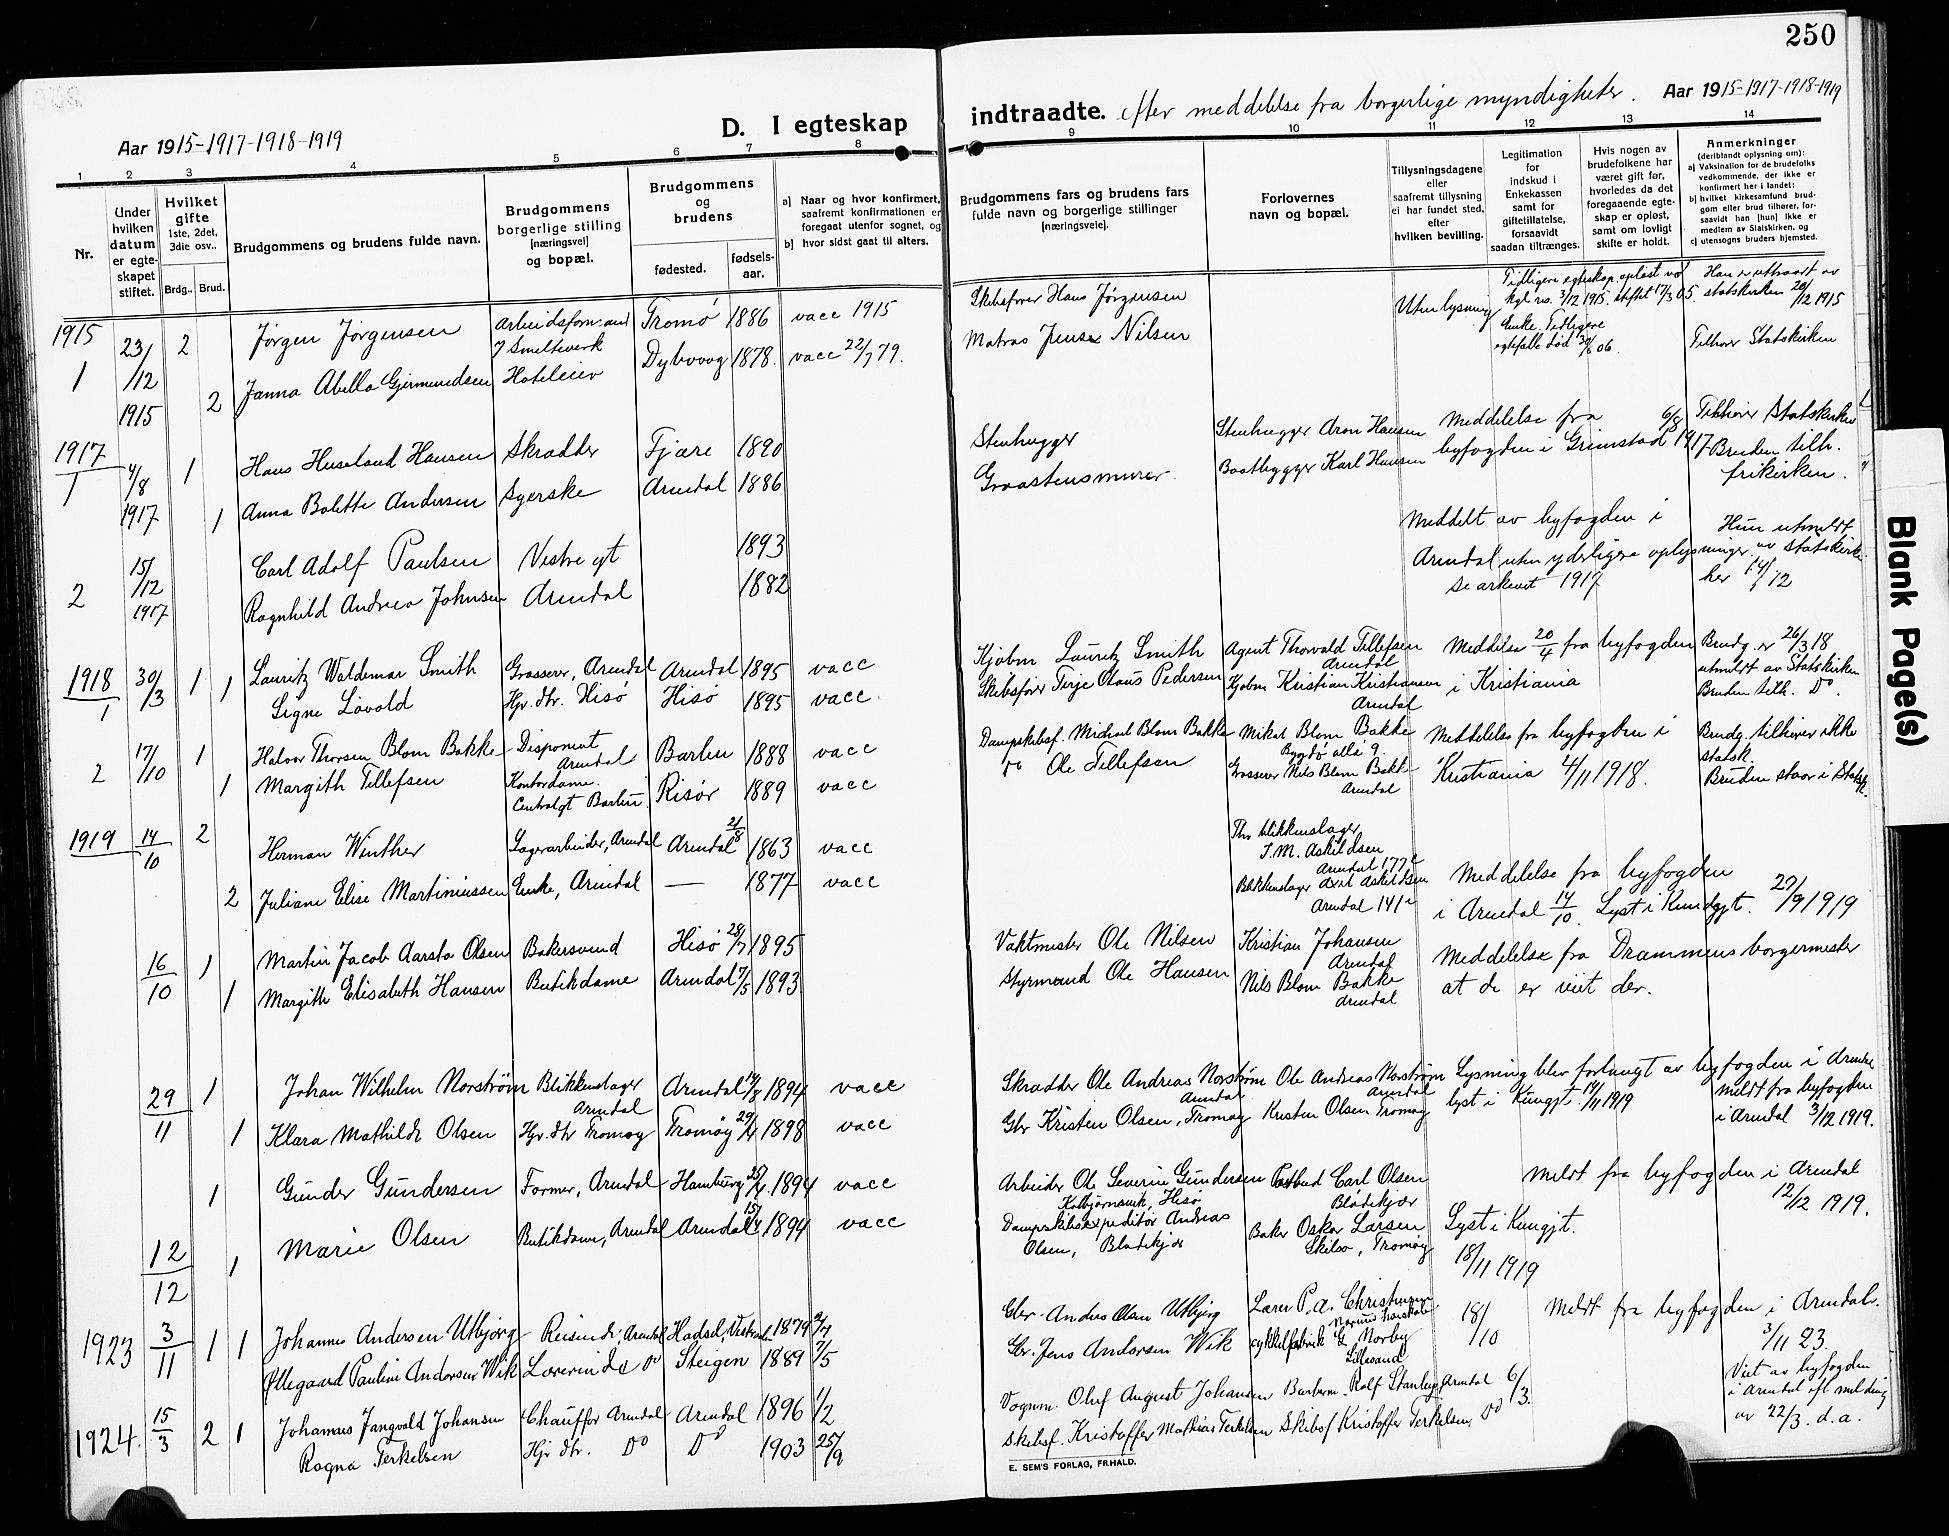 250
Aar 1915-1917-1918-1919
D. I egteskap
indtraadte. efter meddelelse fra borgerlige myndigheter.
Aar 1915-1917-1918-1919
1 2 3 4 5 6 7 8
9 10 11 12 13 14
Nr.
Under
hvilken
datum
er egte-
skapet
stiftet.
Hvilket
gifte
1ste, 2det,
3die osv..
Brdg.. Brud.
Brudgommens og brudens fulde navn.
Brudgommens
borgerlige stilling
(næringsvei)
og bopæl.
Brudgommens
og
brudens
fødested.
fødsels-
aar.
a) Naar og hvor konfirmert,
saafremt konfirmationen er
foregaat utenfor sognet, og
b) hvor sidst gaat til alters.
Brudgommens fars og brudens fars
fulde navn og borgerlige stillinger
(næringsveie).
Forlovernes
navn og bopæl.
Tillysningsdagene
eller
saafremt tillysning
ei har fundet sted,
efter
hvilken bevilling.
Legitimation
for
indskud i
Enkekassen
samt for
giftetillatelse,
forsaavidt
saadan tiltrænges.
Hvis nogen av
brudefolkene har
været gift før,
hvorledes da det
foregaaende egte-
skap er opløst,
samt om lovligt
skifte er holdt.
Anmerkninger
(deriblandt oplysning om):
a) Vaksination for de brudefolks
vedkommende, der ikke er
konfirmert her i landet;
b) hvilket kirkesamfund brud-
gom eller brud tilhører, for-
saavidt han [hun] ikke er
medlem av Statskirken, og
c) utensogns bruders hjemsted.
1915
1
23/12
1915
2 Jørgen Jørgensen Arbeidsformand
Smelteverk Tromø 1886 vacc 1915
Skibsfører Hans Jørgensen
Uten lysning
Tidligere egteskap opløst ved
kgl. res. 3/12 1915. stiftet 17/3 05
Han er uttraadt av
statskirken 20/12 1915
2 Janna Abella Gjermundsen Hoteleier Dybvaag 1878. vacc 22/7 79.
Matros Jens Nilsen
Enke. Tidligere
egtefælle død 30/6 06.
Tilhører Statskirken
1917
1
4/8
1917
1 Hans Huseland Hansen Skrædder Fjære 1890
Stenhugger
Stenhugger Aron Hansen
Meddelelse fra 6/8
byfogden i Grimstad 1917
Tilhører Statskirken
1 Anna Bolette Andersen Syerske Arendal 1886
Graastensmurer.
Baatbygger Karl Hansen
Bruden tilh.
frikirken.
2
15/12
1917
Carl Adolf Paulsen Vestre gt 1893
Ragnhild Andrea Johnsen Arendal 1882
Meddelt av byfogden i
Arendal uten yderligere oplysninger.
Se arkivet 1917
Hun utmeldt
av Statskirke
her
1918
1
30/3
1 1 Lauritz Waldemar Smith Grosserer, Arendal Arendal 1895 vacc
Kjøbm Lauritz Smith
Agent Thorvald Tellefsen
Arendal
Meddelse 20/4 fra byfogden
i Kristiania
Brudg. er 26/3 18
utmeldt av Statskirken
Signe Løvold Hj. dtr. Hisø Hisø 1895 vacc
Skibsfører Terje Olaus Pedersen
Kjøbm Kristian Kristiansen
Arendal
Bruden tilh. Do.
2
17/10
1 Halvor Thorsen Blom Bakke Disponent
Arendal Barbu 1888 vacc
Dampskibsf. Michael Blom Bakke
Mikal Blom Bakke
Bygdø alle 9.
Meddelelse fra byfogden i
Kristiania 4/11 1918.
Brudg. tilhører ikke
statsk.
1 Margith Tellefsen Kontordame.
Centralgt Barbu Risør 1889 vacc
Do Ole Tellefsen
Grosserer Nils Blom Bakke
Arendal
Bruden staar i Statsk.
1919
14/10
2 Herman Winther Lagerarbeider, Arendal Arendal 21/8 1863 vacc
Thv blikkenslager
T. M. Askildsen
Arendal 177 c
2 Juliane Elise Martiniussen Enke, Arendal — 1877 vacc
Blikkenslager Axel Askildsen
Arendal 141 c
Meddelelse fra byfogden
i Arendal 14/10. Lyst i Kundgjt. 27/9 1919
16/10
1 Martin Jacob Aarsta Olsen Bakersvend Hisø 28/7 1895
Vaktmester Ole Nilsen
Kristian Johansen
Arendal
1 Margith Elisabeth Hansen Butikdame Arendal 7/5 1893
Styrmand Ole Hansen
Nils Blom Bakke
Arendal
Meddelelse fra Drammens borgermester
at de er viet der.
29/11
1 Johan Wilhelm Norstrøm Blikkenslager
Arendal Arendal 1894 vacc
Skrædder Ole Andreas Norstrøm
Arendal
Ole Andreas Norstrøm
Arendal
Lysning blev forlangt av byfogden i Arendal
lyst i Kungjt. 14/11 1919
meldt fra byfogden
i Arendal 3/12 1919.
1 Klara Mathilde Olsen Hj. dtr Tromøy Tromøy 29/4 1898 vacc
Gbr Kristen Olsen, Tromøy
Kristen Olsen Tromøy
12/12
1 Gunder Gundersen Former, Arendal Hamburg 1894 vacc
Arbeider Ole Severin Gundersen
Kolbjørnsvik, Hisø
Postbud Carl Olsen
Blødekjær
meldt fra byfogden i Arendal
12/12 1919.
1 Marie Olsen Butikdame, Arendal Arendal 1894 vacc
Dampskibsexpeditør Andreas
Olsen, Blødekjær
Baker Oskar Larsen
Skilsø, Tromøy
Lyst i Kungjt.
18/11 1919
1923
3/11
1 1 Johannes Andersen Utbjørg Reisende, Arendal Hadsel, 1879
Gbr. Andreas Olsen Utbjørg
Lærer P. A. Christensen
18/10
Meldt fra byfogden i Arendal.
3/11 23.
Øllegaard Pauline Andersen Wik Lærerinde do Steigen 1889 7/5
Gbr. Jens Andersen Wik
cykkelfabrik G. Norby
Lillesand
1924.
15/3
2 1 Johannes Jangvald Johansen Chauffør Arendal Arendal 1896 1/2
Vognm. Oluf August Johansen
Barberm. Rolf Stanley Arendal 6/3.
Viet av byfogden
i Arendal efl melding
av 22/3. d.a.
Ragna Terkelsen Hj dtr. Do Do 1903 25/9
Skibsf. Kristoffer Mathias Terkelsen
Skibsf Kristoffer Terkelsen, Do
E. SEM'S FORLAG, FR.HALD.
Blank Page(s)